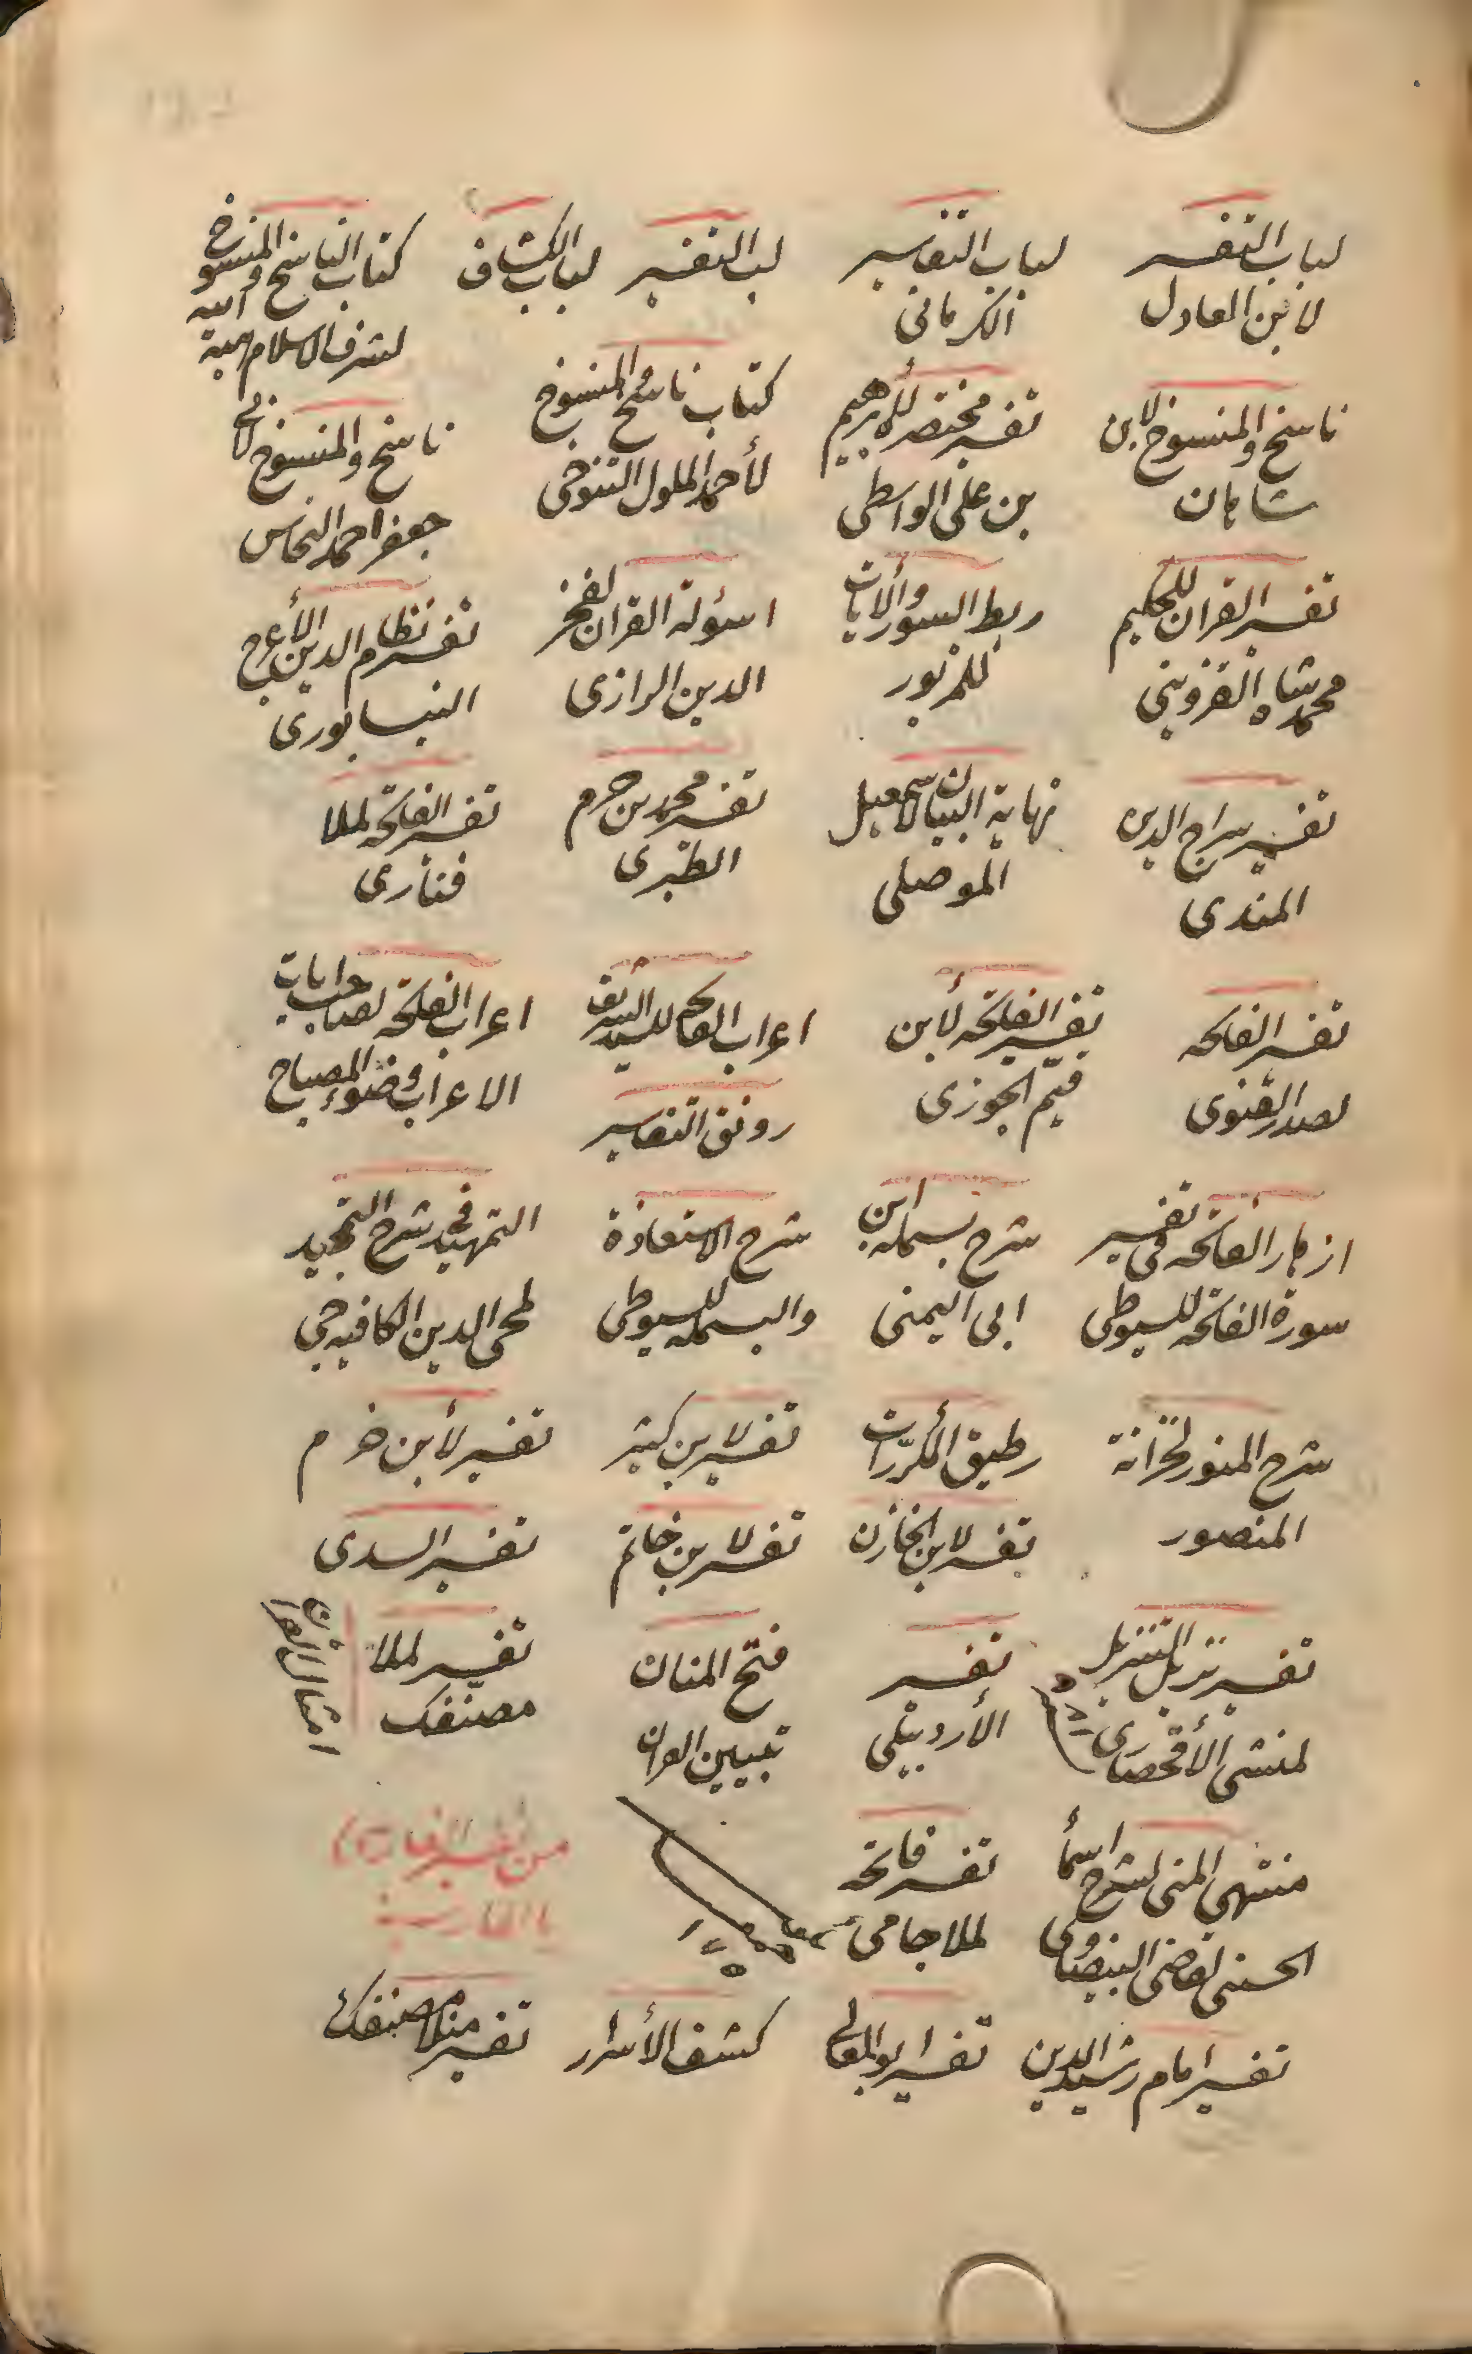 لباب التفسير
لابن العادل
لباب التفاسير
الكرمانى
لب التفسير
لباب الكشاف
كتاب الناسخ والمنسوخ
لشرف الاسلام هبة
ناسخ والمنسوخ لابن
شاهان
تفسير مختصر لأبرهيم
بن على الواسطى
كتاب ناسخ والمنسوخ
لأحمد الملول التنوخى
ناسخ والمنسوخ لابى
جعفر احمد النحاس
تفسير القران للحكيم
محمد شاه القزوينى
ربط السور والأيات
للمزبور
اسؤلة القران لفخر
الدين الرازى
تفسير نظام الدين الأعرج
النيسابورى
تفسير سراج الدين
الهندى
نهاية البيان لاسمعيل
الموصلى
تفسير محمد بن جرم
الطبرى
تفسير الفاتحه لملا
فنارى
تفسير الفاتحه
لصدر القنوى
تفسير الفاتحه لأبن
قيّم الجوزى
اعراب الفاتحه للسيد الشريف
رونق التفاسير
اعراب الفاتحه لصاحب
الاعراب وضوء المصباح
ازهار الفاتحه فى تفسير
سورة الفاتحه للسيوطى
شرح بسمله ابن
ابى اليمنى
شرح الاستعاذة
والبسمله للسيوطى
التمهيد فى شرح التحميد
لمحى الدين الكافيه جى
شرح المنور لخزانة
المنصور
رطيق المكرّرات
تفسير لابن كثير
تفسير لأبن خرم
تفسير لابن الخازن
تفسير لابن خاتم
تفسير السدى
تفسير تنزيل التنزيل
لمنشى الأقحصارى
تفسير
الأردبيلى
فتح المنان
تبيين القران
تفسير لملا
مصنفك
امثال القران
منتهى المنى لشرح اسمأ
الحسنى لقاضى البيضاوى
تفسير فاتحه
لملا جامى
تفسير امام رشيد الدين
تفسير ابو المعالى
كشف الأسرار
تفسير منلا مصنفك